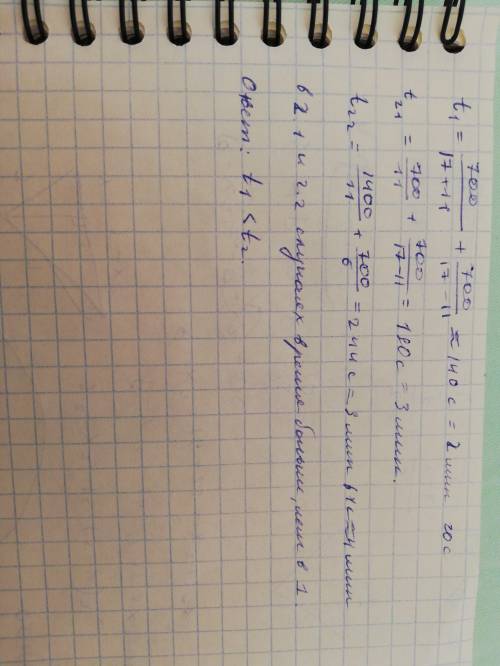 t₁ = 700/17+11 + 700/17-11 ≈ 140 с = 2 мин 20 с
t₂₁ = 700/11 + 700/17-11 = 180 с = 3 мин.
t₂₂ = 1400/11 + 700/6 = 244 с = 3 мин 64 с ≈ 4 мин
в 2.1 и 2.2 случаях время больше, чем в 1.
Ответ: t₁ < t₂.